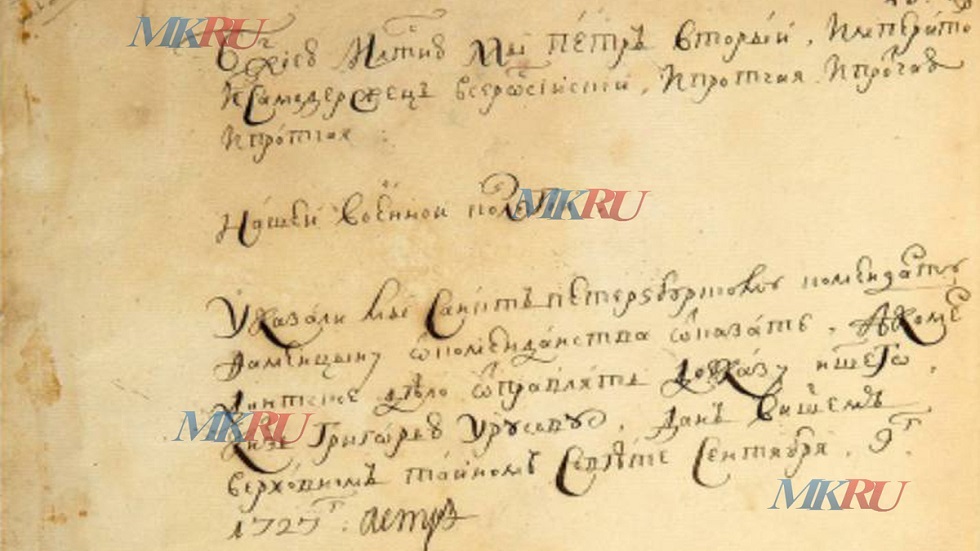 MKRU
Бжиею Млтию Мы пéтръ вторыи, Император
И самодержецъ всеросиискии, И протчая И протчая
И протчая:
Нашей военной колегии
MKRU
Указали мы Санктъ петерзбургскому коменданту
Фаменцыну от коменданства отказать, А коме
дантское дѣло отправлять до указу ншего
MKRU
Кнзю Григорью Урусову, Данъ в ншемъ
верховномъ таиномъ Совѣте Сентября 9г.
MKRU
1727г: Петръ